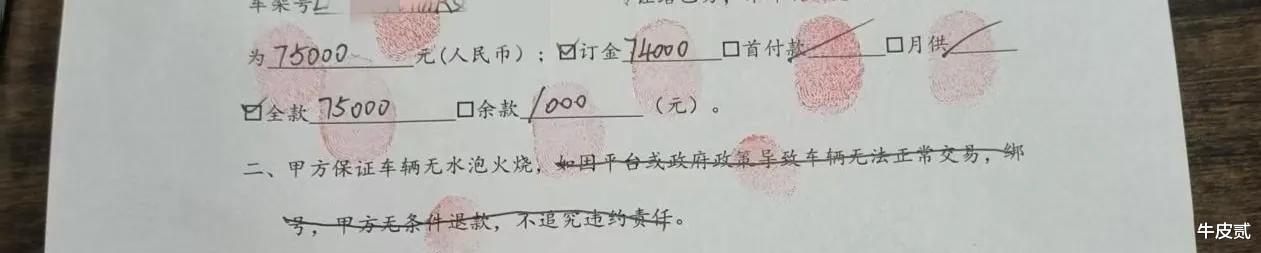 车架号L
为75000元(人民币)；☑订金74000 □首付款 □月供
☑全款75000 □余款1000（元）。
二、甲方保证车辆无水泡火烧，如因平台或政府政策导致车辆无法正常交易，绑
号，甲方无条件退款，不追究违约责任。
牛皮贰